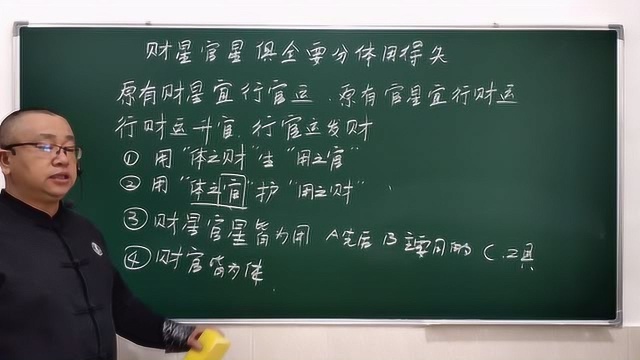 财星官星俱全要分体用得失
原有财星宜行官运、原有官星宜行财运
行财运升官、行官运发财
① 用“体之财”生“用之官”
② 用“体之官”护“用之财”
③ 财星官星皆为用 A先后 B主要目的 C.工具
④ 财官皆为体.